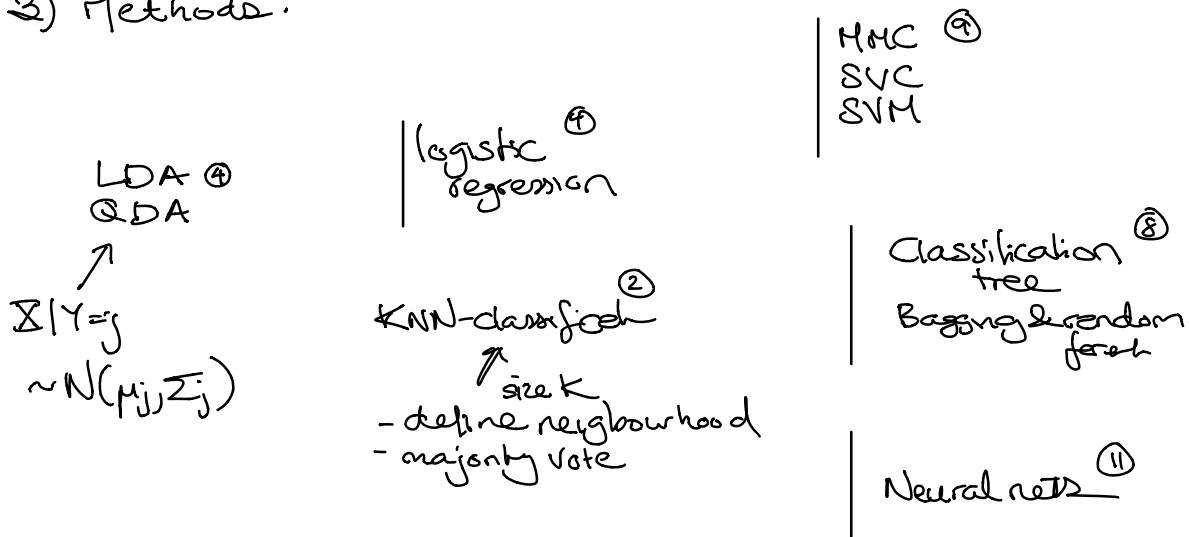 3) Methods.
LDA ④
QDA
X|Y=j
~N(μj, Σj)
logistic ④
regression
KNN-classifier ②
size K
- define neigbourhood
- majority vote
MMC ⑨
SVC
SVM
Classification ⑧
tree
Bagging & random
forest
Neural nets ⑪